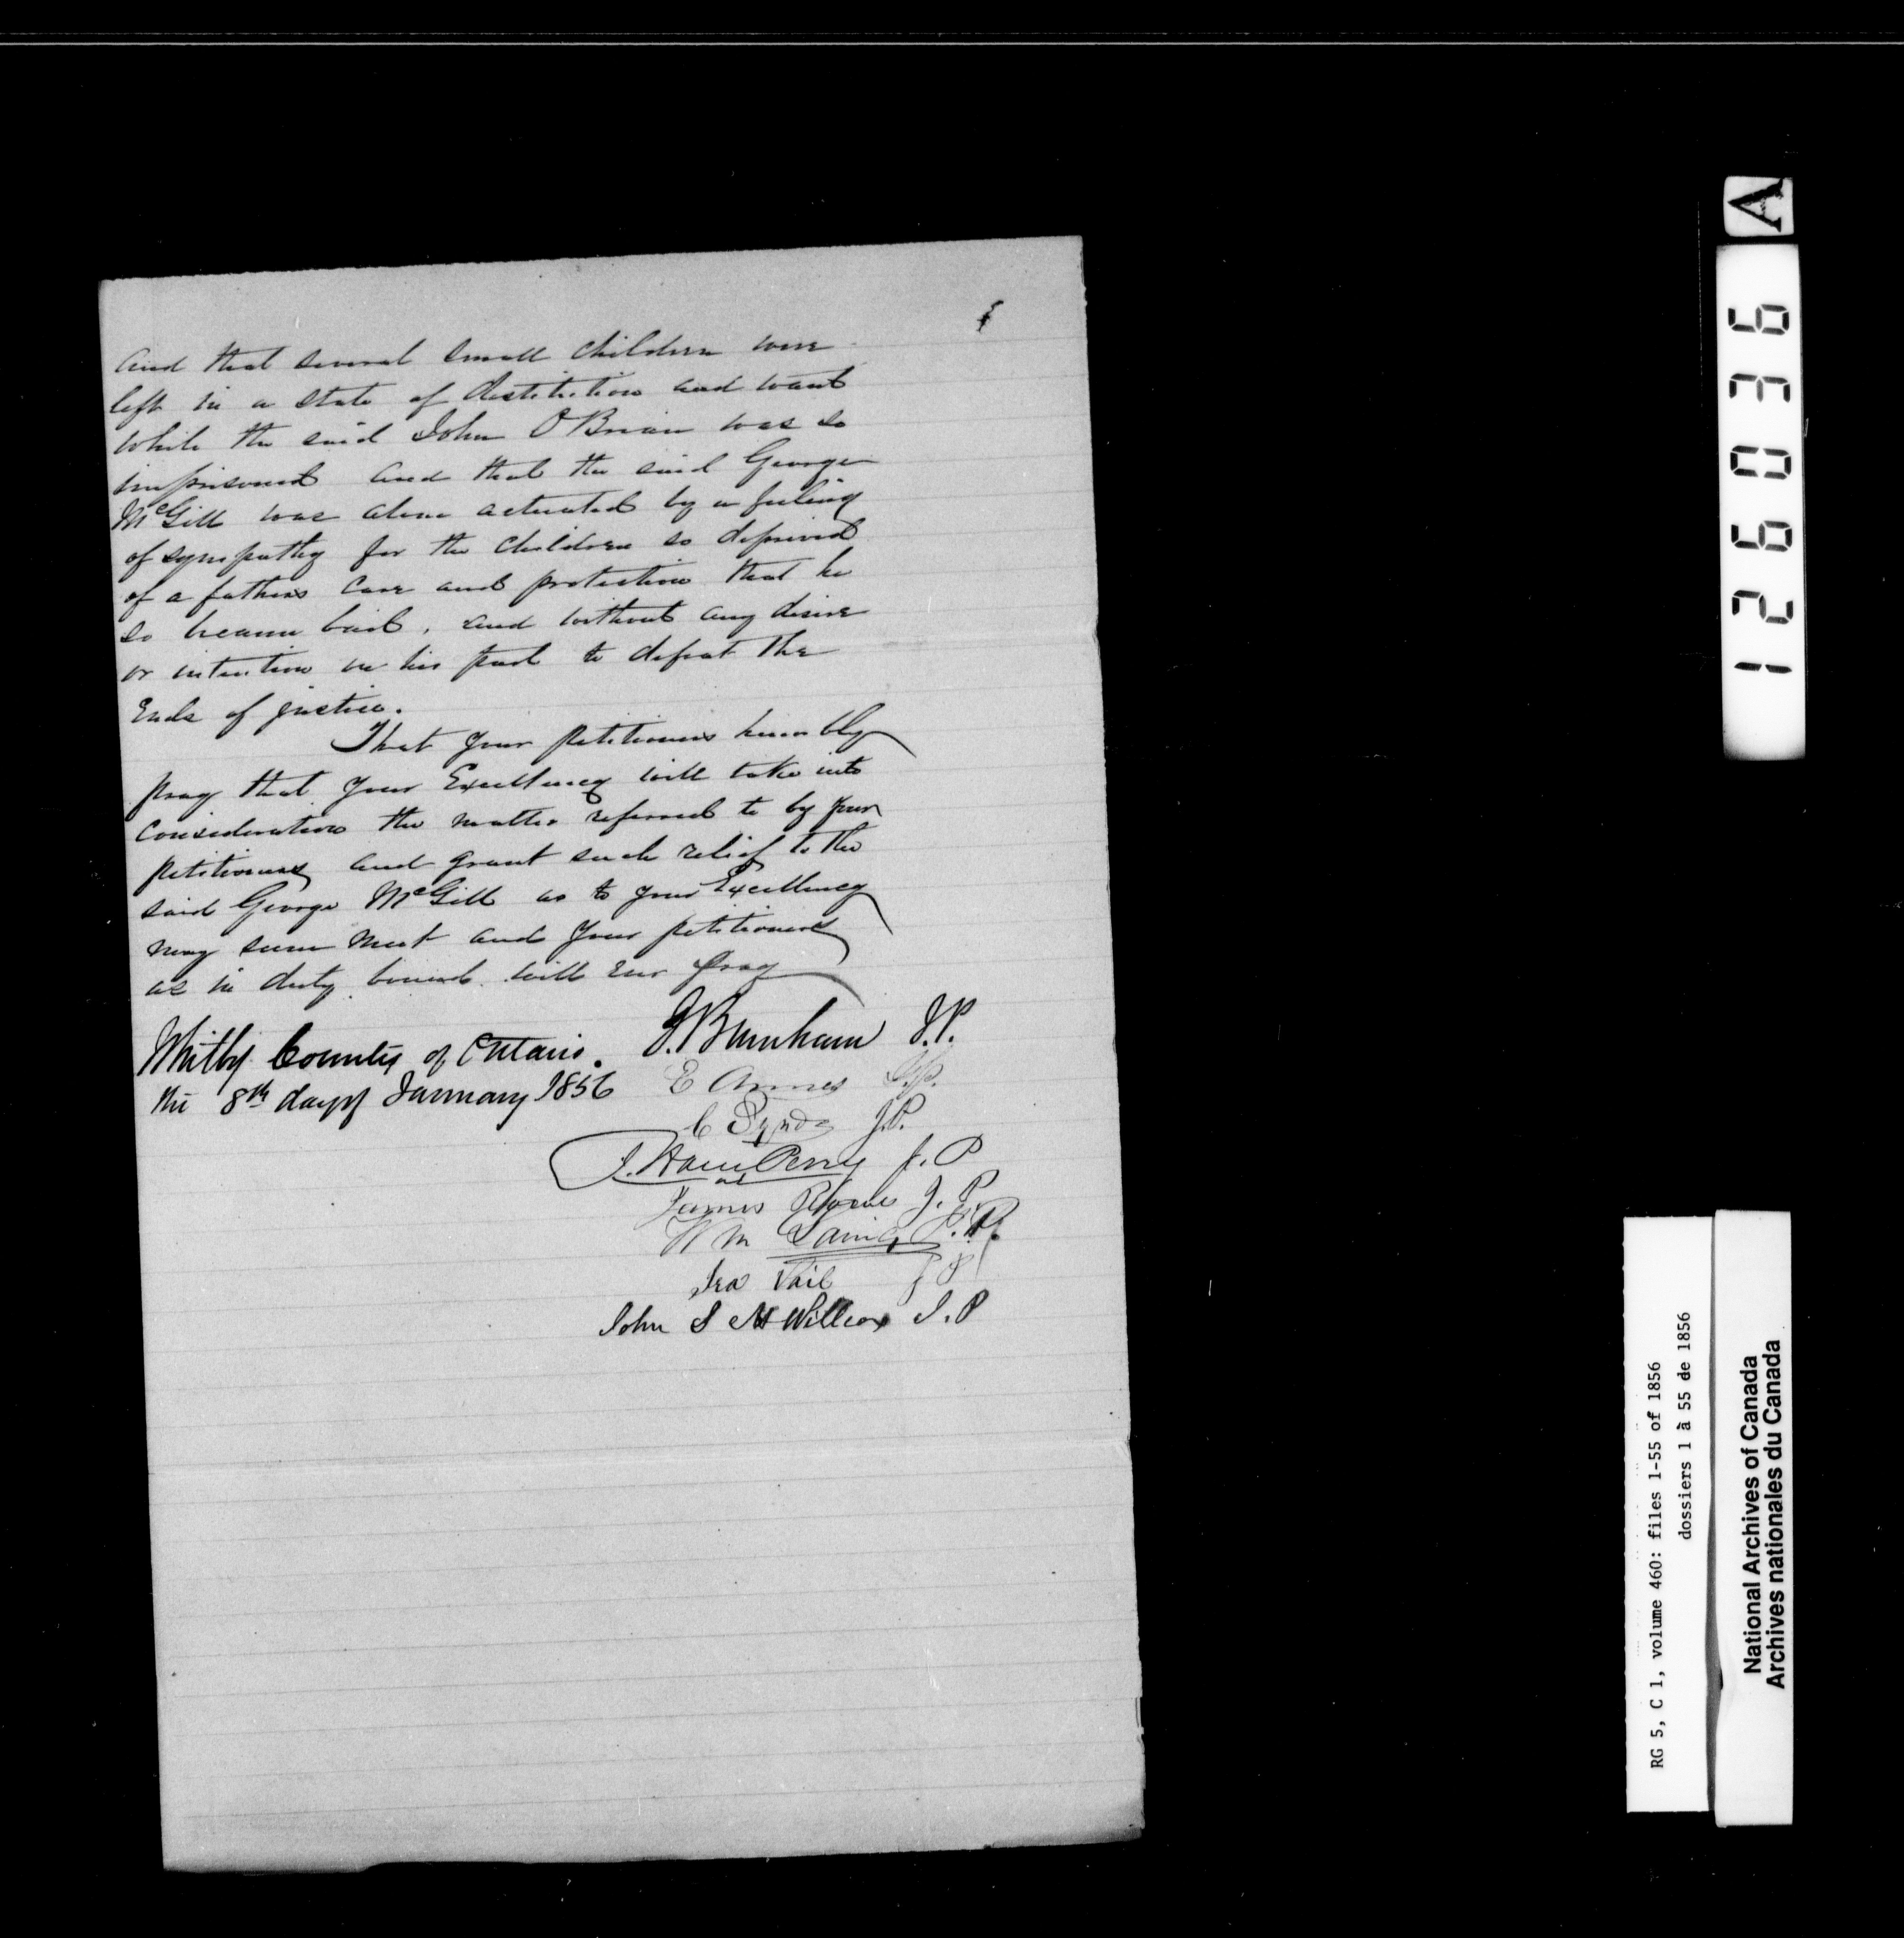 and that several small children were
left in a state of destitution and want
while the said John O'Brian was so
imprisoned and that the said George
McGill was alone actuated by a feeling
of sympathy for the children so deprived
of a fathers care and protection that he
so became bail, and without any desire
or intention on his part to defeat the
Ends of justice.
That your petitioners humbly
pray that your Excellency will take into
consideration the matter referred to by your
petitioners and grant such relief to the
said George McGill as to your Excellency
may seem meet and your petitioners
as in duty bound will ever pray
Whitby County of Ontario.
the 8th day of January 1856
J. Burnham J.P.
E Annes J.p.
C J.P.
J. Ham Perry J.P
James J.P
Wm Laing J.P.
Ira Vail J P
John S M Willcox J.P
A
126036
RG 5, C 1, volume 460: files 1-55 of 1856
dossiers 1 à 55 de 1856
National Archives of Canada
Archives nationales du Canada